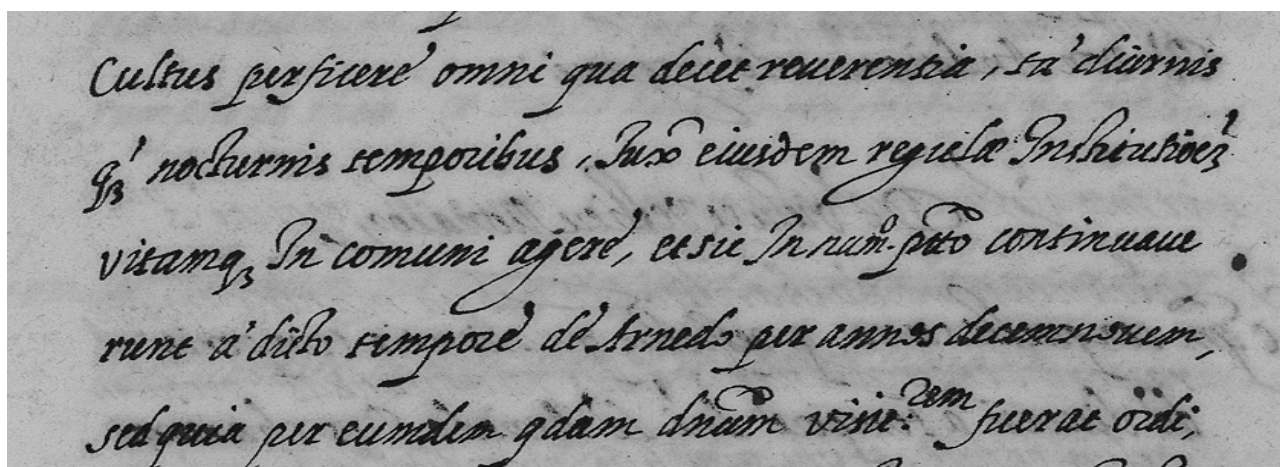 Cultus perficere omni qua decet reuerentia, tā diurnis
q3 nocturnis temporibus, Juxᵃ eiusdem regulæ Institutiōe3
vitamq3 In comuni agere, et sic In num.º prᵗo continuaue
runt à dicto tempore de Arnedo per annos decemnouem,
sed quia per eumdem qdam dnūm visit.rem fuerat ordi,